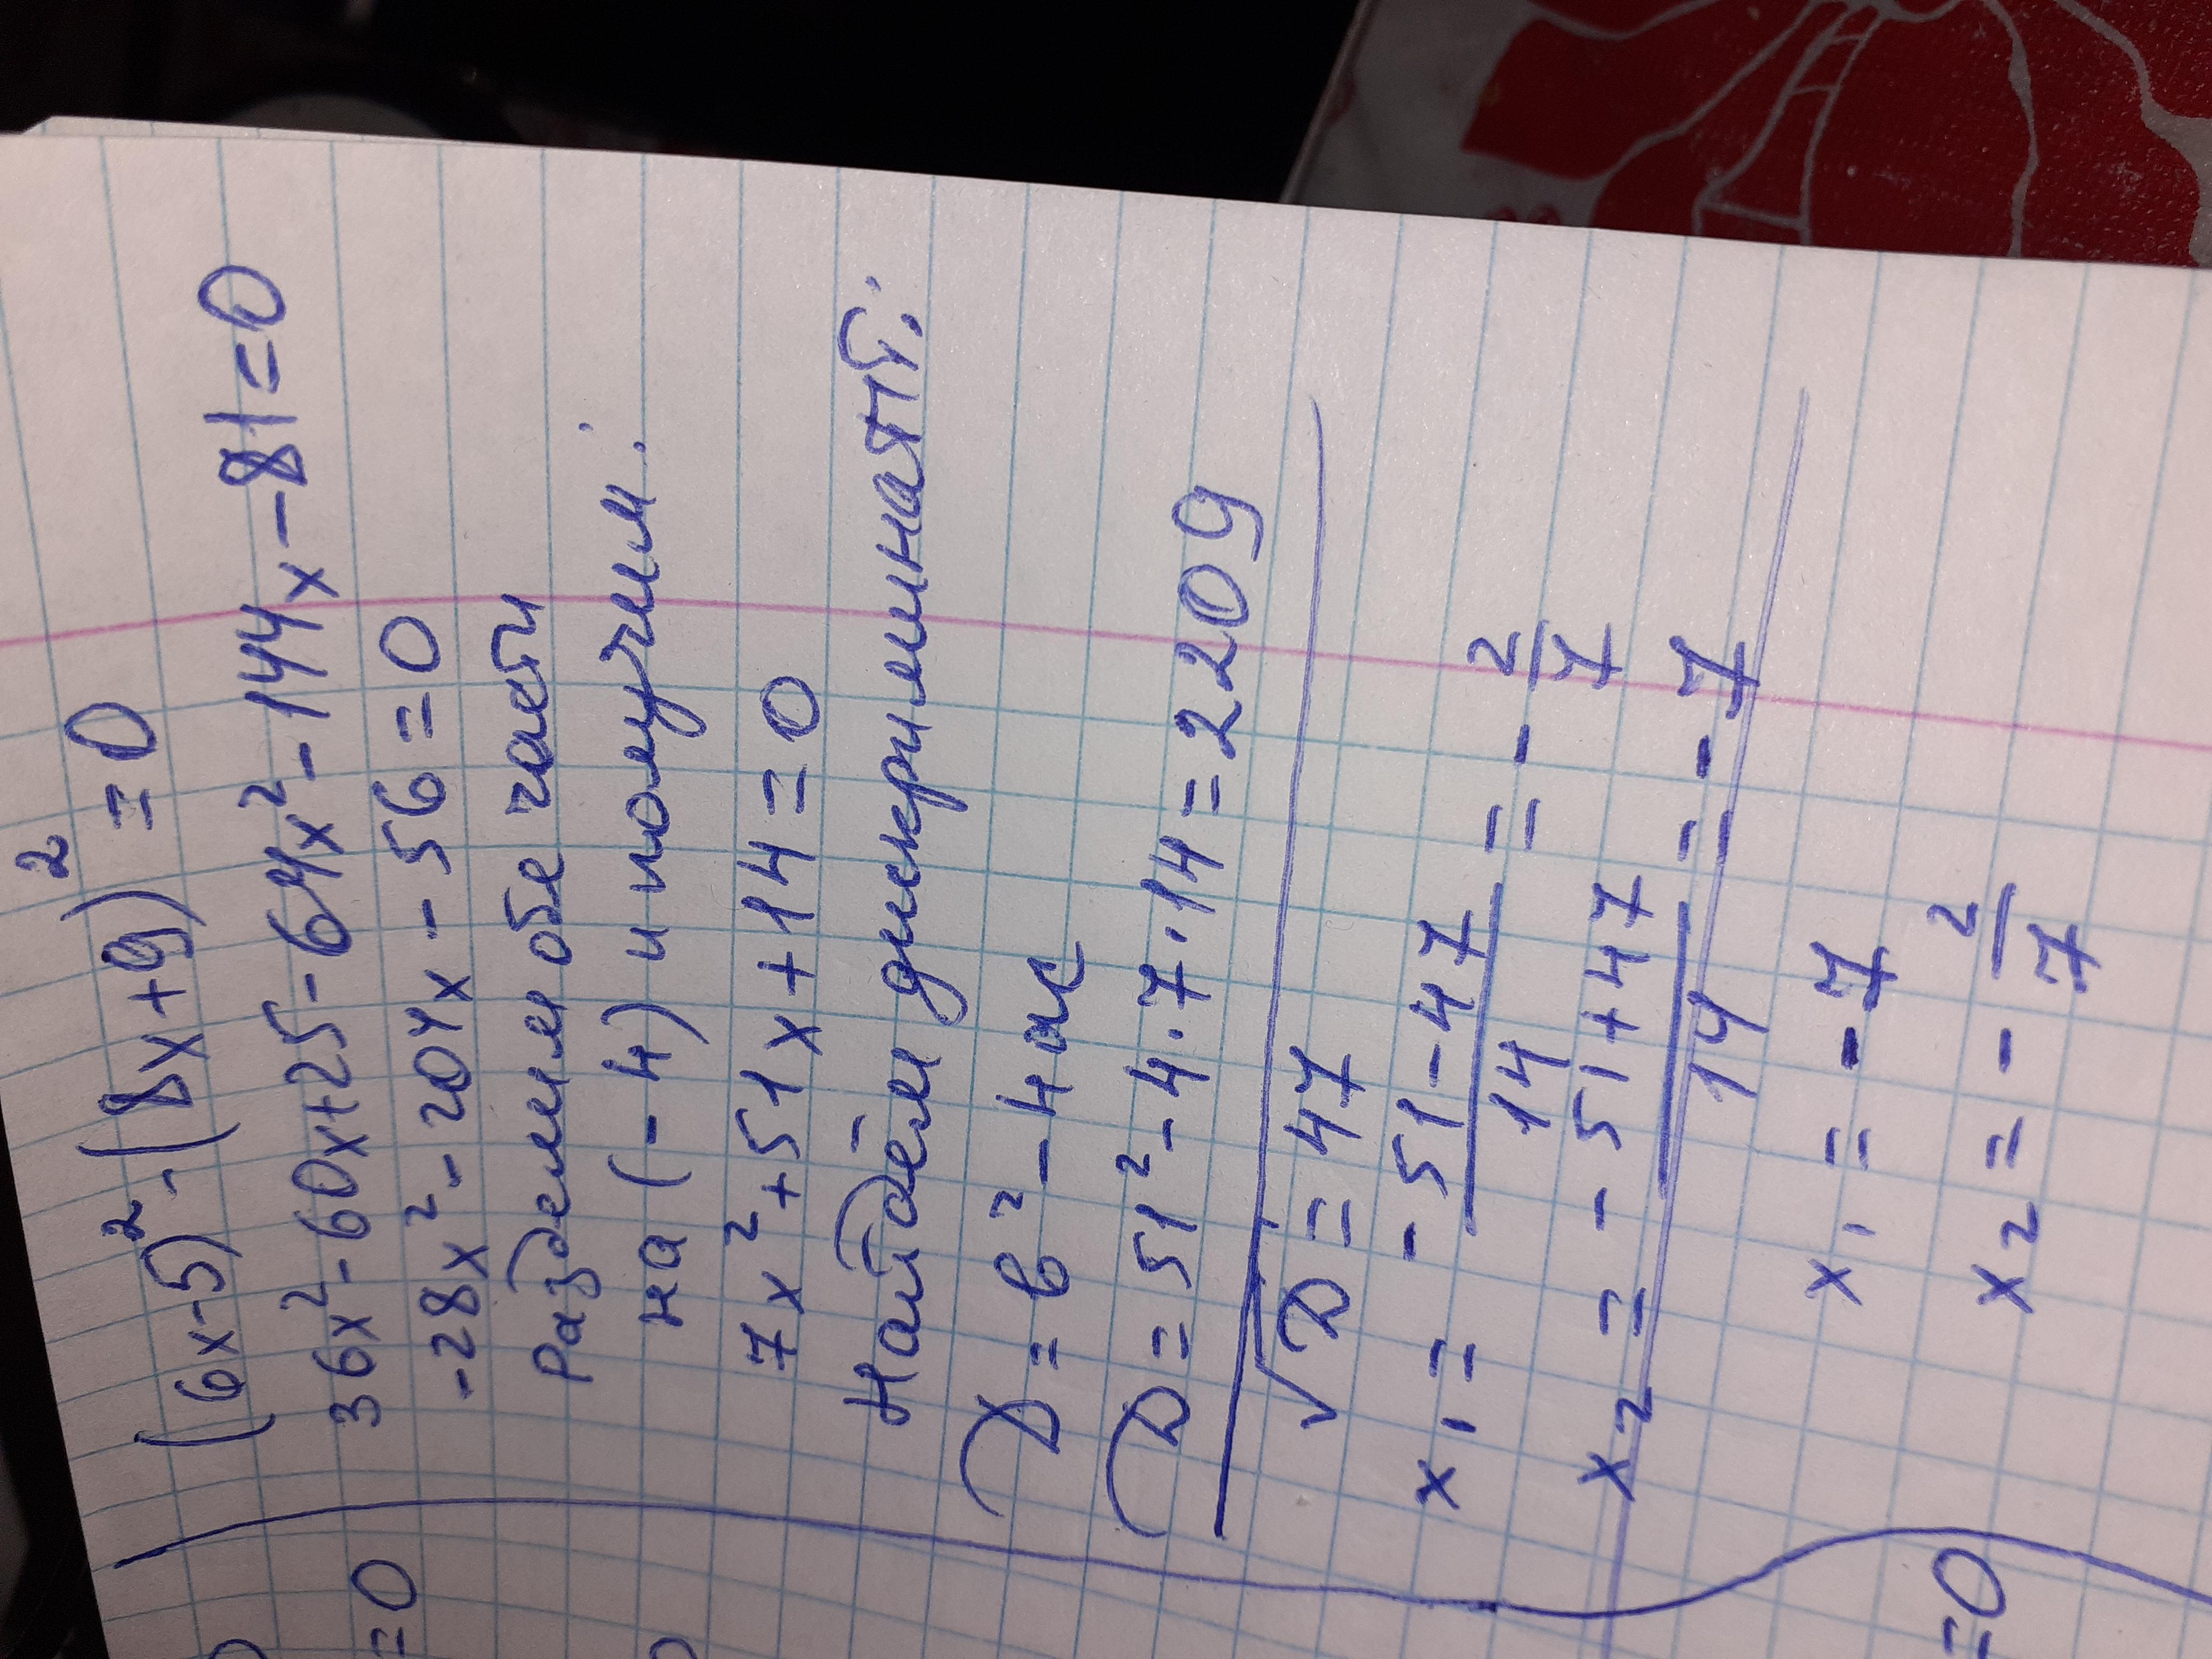 (6x-5)²-(8x+9)²=0
36x²-60x+25-64x²-144x-81=0
-28x²-204x-56=0
Разделим обе части
на (-4) и получим:
7x²+51x+14=0
Найдём дискриминант:
D=b²-4ac
D=51²-4·7·14=2209
√D=47
x₁= -51-47/14 = -2/7
x₂= -51+47/14 = -7
x₁=-7
x₂=-2/7
=0
=0